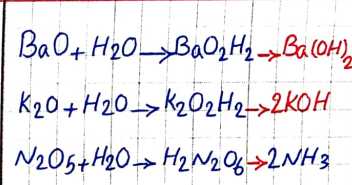 BaO + H2O → BaO2H2 → Ba(OH)2
K2O + H2O → K2O2H2 → 2KOH
N2O5 + H2O → H2N2O6 → 2NH3